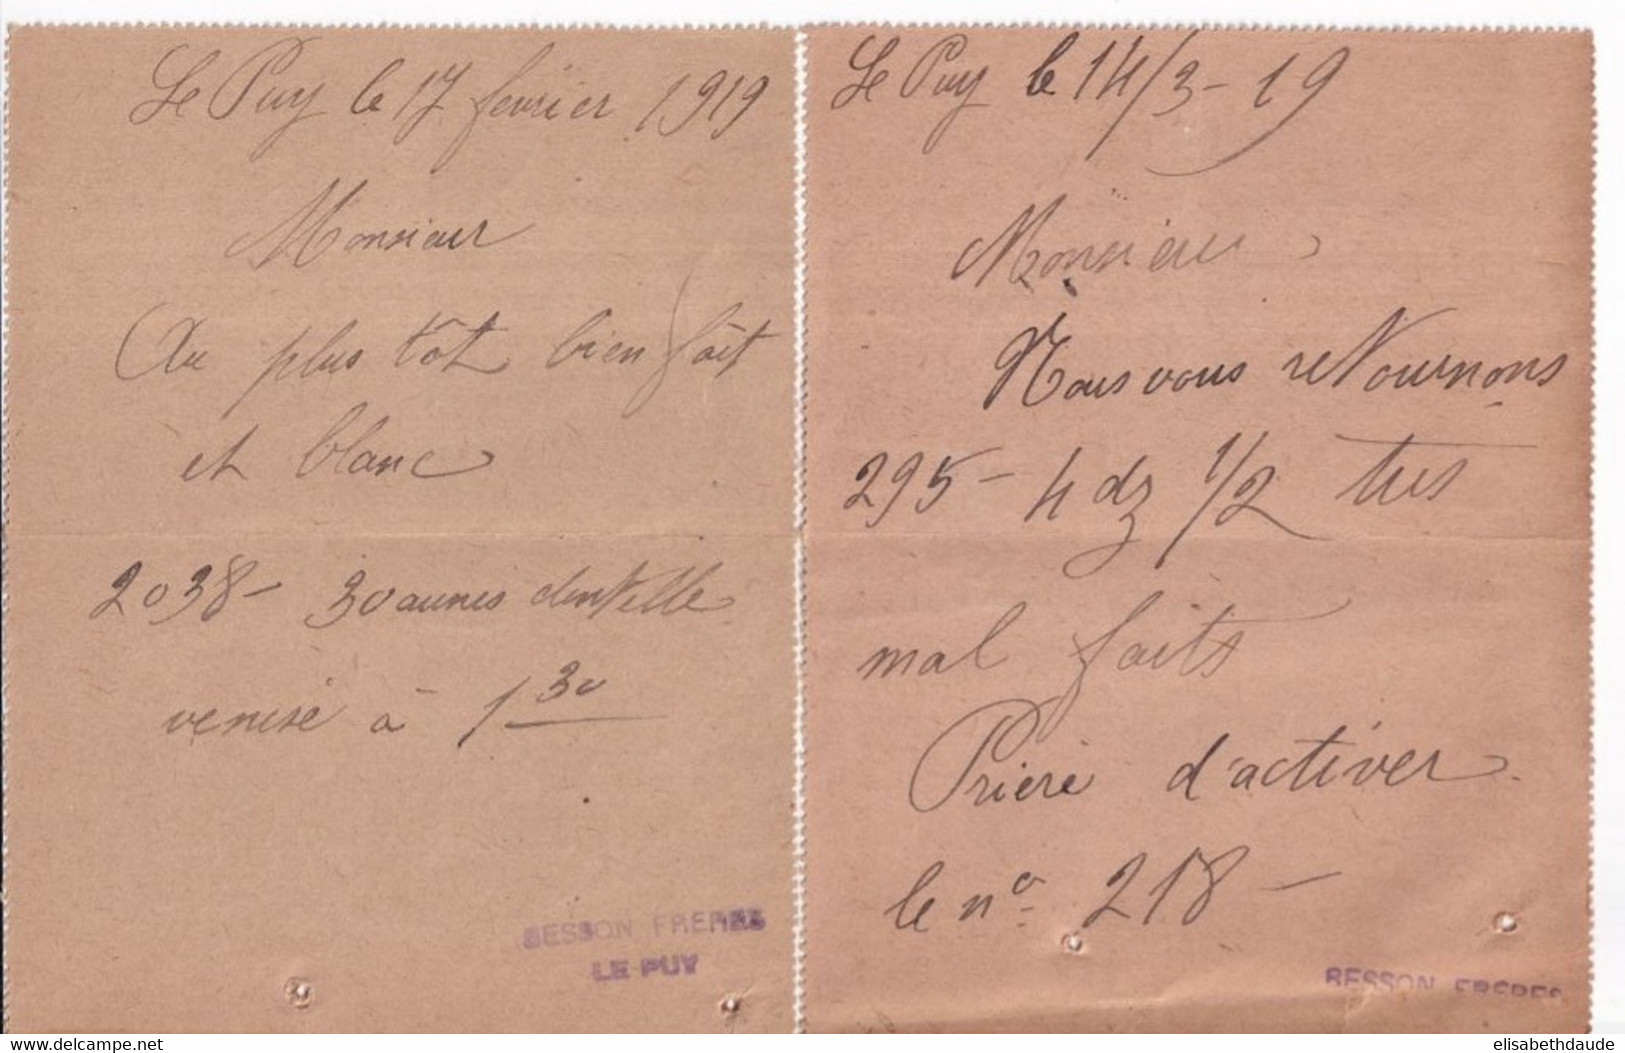 Le Puy le 17 février 1919
Monsieur
Au plus tôt bien fait
et blanc
2038 - 30 aunes dentelle
venise à 1 30
BESSON FRERES
LE PUY
Le Puy le 14/3-19
Monsieur
Nous vous retournons
295 - 4 dz 1/2 très
mal faits
Prière d'activer
le nº 218 -
BESSON FRERES
www.delcampe.net
elisabethdaude